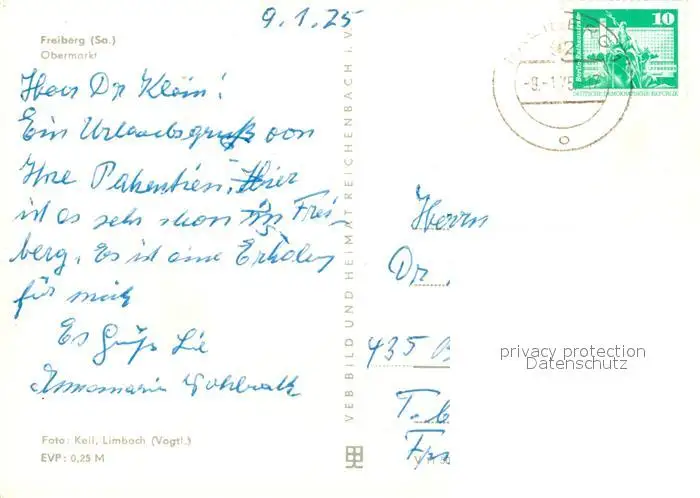 9.1.75
Freiberg (Sa.)
Obermarkt
Herr Dr Klein!
Ein Urlaubsgruß von
Ihre Patientien. Hier
ist es sehr schön in Frei-
berg. Es ist eine Erholung
für mich
Es Grüß Sie
Annemarie
Foto: Keil, Limbach (Vogtl.)
EVP: 0,25 M
VEB BILD UND HEIMAT REICHENBACH i. V.
10
Berlin, Rathausstraße
DEUTSCHE DEMOKRATISCHE REPUBLIK
92
-9.-1.75
Herrn
Dr.
435 B
privacy protection
Datenschutz